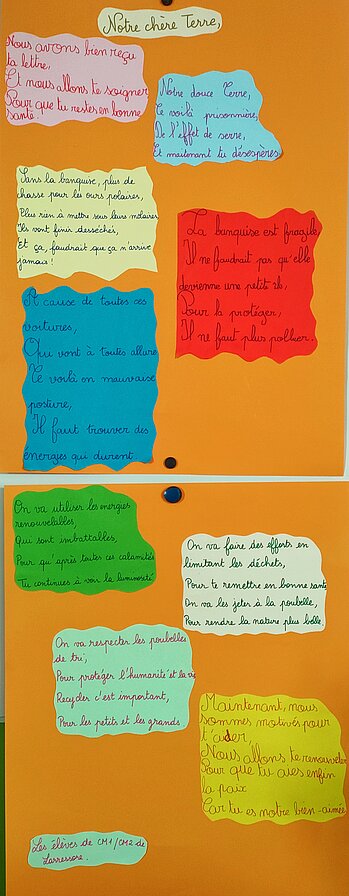 Notre chère Terre,
Nous avons bien reçu
ta lettre,
Et nous allons te soigner
Pour que tu restes en bonne
santé.
Notre douce Terre,
Te voilà prisonnière,
De l'effet de serre,
Et maintenant tu désespères
Sans la banquise, plus de
chasse pour les ours polaires,
Plus rien à mettre sous leurs molaires
Ils vont finir desséchés,
Et ça, faudrait que ça n'arrive
jamais !
La banquise est fragile
Il ne faudrait pas qu'elle
devienne une petite île,
Pour la protéger,
Il ne faut plus polluer.
A cause de toutes ces
voitures,
Qui vont à toutes allure
Te voilà en mauvaise
posture,
Il faut trouver des
énergies qui durent
On va utiliser les énergies
renouvelables,
Qui sont imbattables,
Pour qu'après toutes ces calamités
Tu continues à voir la luminosité
On va faire des efforts en
limitant les déchets,
Pour te remettre en bonne santé
On va les jeter à la poubelle,
Pour rendre la nature plus belle.
On va respecter les poubelles
de tri,
Pour protéger l'humanité et la vie
Recycler c'est important,
Pour les petits et les grands
Maintenant, nous
sommes motivés pour
t'aider,
Nous allons te renouveler
Pour que tu aies enfin
la paix
Car tu es notre bien-aimée
Les élèves de CM1/CM2 de
Larressore.